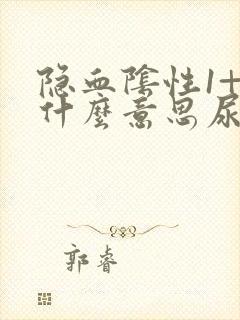 隐血陰性1+
什麼意思尿
郭睿